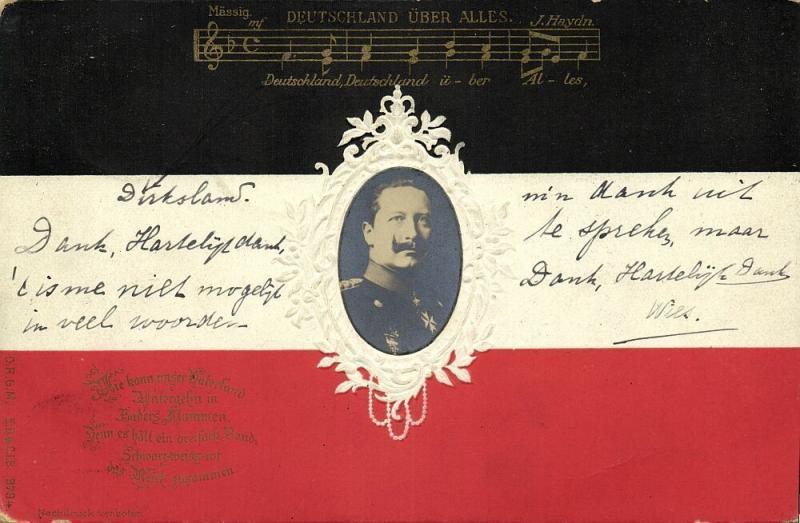 Mässig. DEUTSCHLAND ÜBER ALLES. J. Haydn.
mf
Deutschland, Deutschland ü - ber Al - les,
Dirksland.
Dank, Hartelijk dank,
't is me niet mogelijk
in veel woorden
mijn dank uit
te spreken, maar
Dank, Hartelijk Dank
Wies.
Nie kann unser Vaterland
Untergehn in
Haders Flammen,
Denn es hält ein dreifach Band,
Schwarz-weiss-rot
das Reich zusammen
D.R.G.M.
Nachdruck verboten